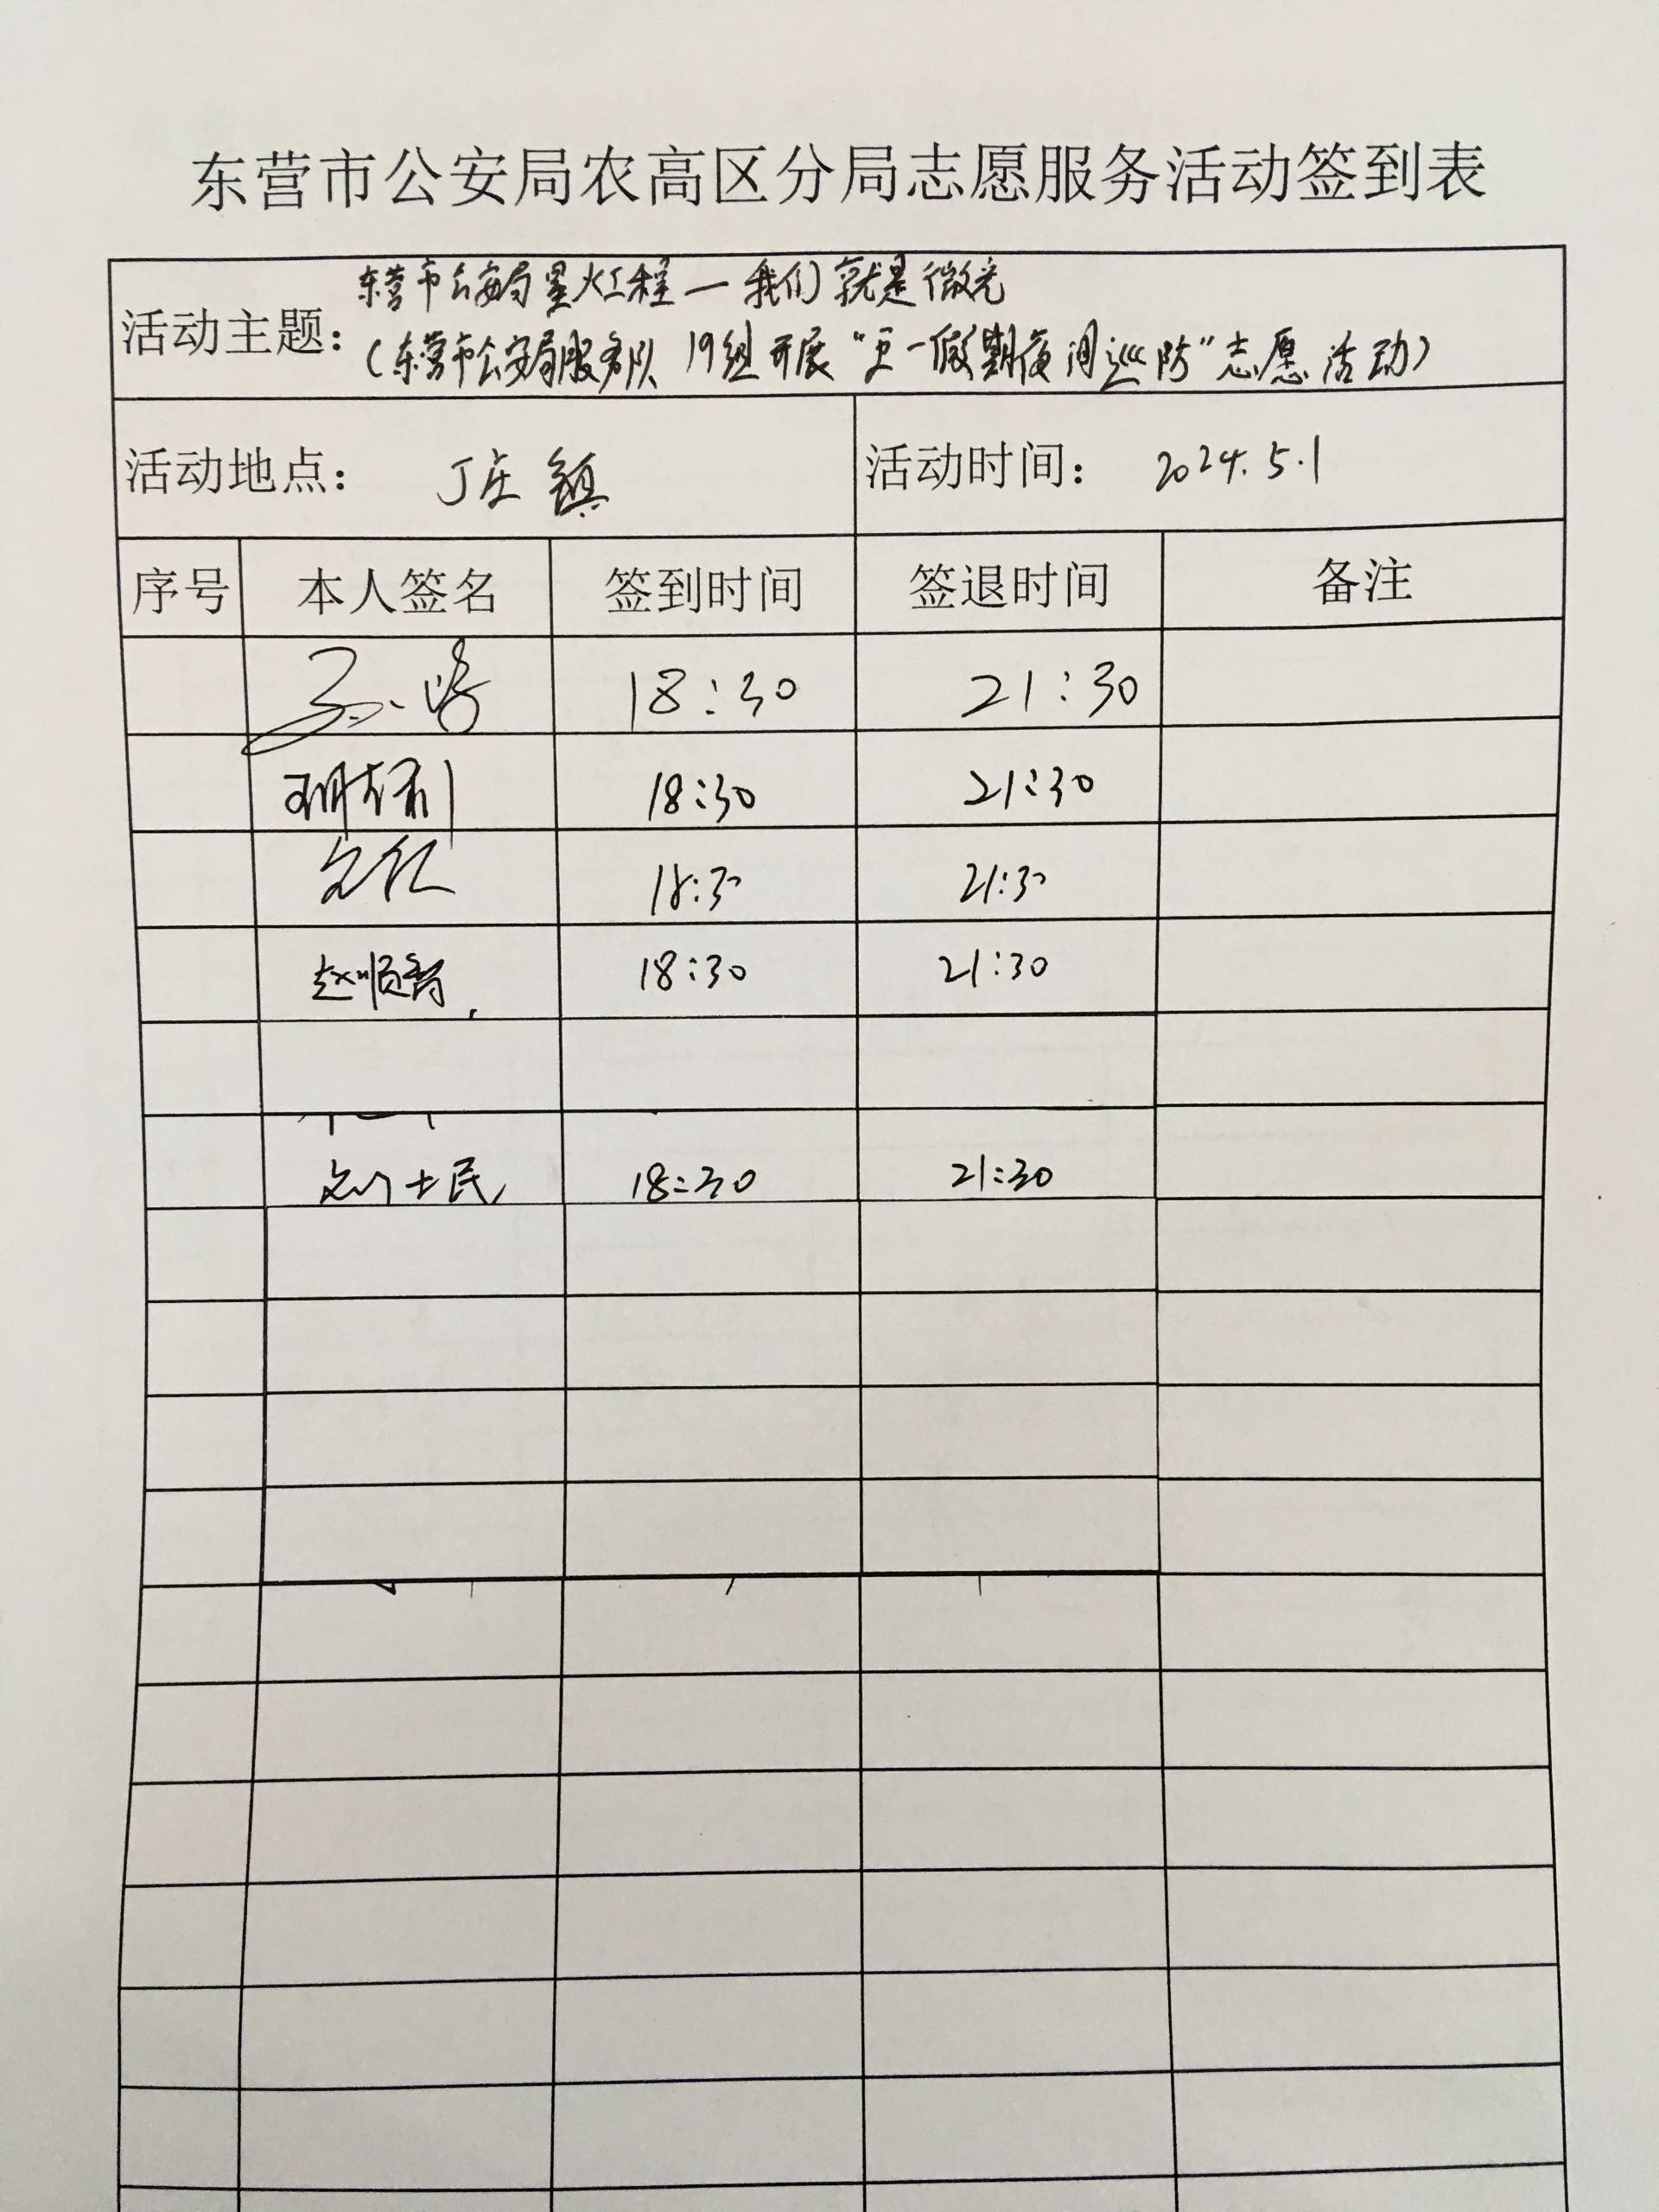 东营市公安局农高区分局志愿服务活动签到表
活动主题：东营市公安局星火工程—我们就是微光
（东营市公安局服务队19组开展“五一假期夜间巡防”志愿活动）
活动地点： 丁庄镇 活动时间： 2024.5.1
序号 本人签名 签到时间 签退时间 备注
18:30 21:30
18:30 21:30
18:30 21:30
赵顺 18:30 21:30
刘士民 18:30 21:30